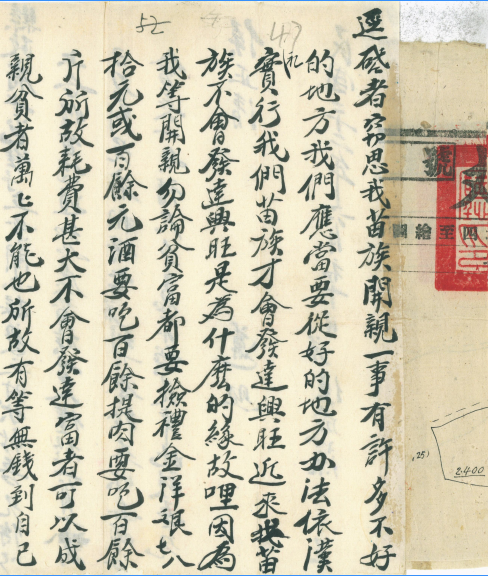 逕啓者窃思我苗族開親一事有許多不好
的地方我們應當要從好的地方办法依漢
實行我們苗族才會發達興旺近來我苗
族不會發達興旺是為什麽的緣故哩因為
我等開親勿論貧富都要撿禮金洋銀七八
拾元或百餘元酒要吃百餘提肉要吃百餘
斤所故耗費甚大不會發達富者可以成
親貧者萬上不能也所故有等無錢到自己
礼
47
52
號
四至繪圖
25)
2400